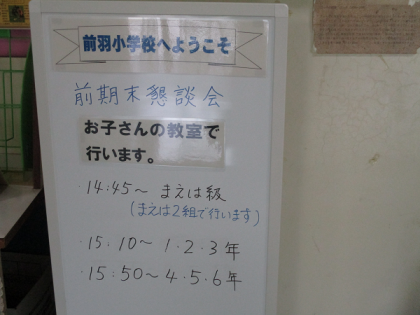 前羽小学校へようこそ
前期末懇談会
お子さんの教室で
行います。
・14:45～ まえは級
(まえは2組で行います)
・15:10～ 1・2・3年
・15:50～ 4・5・6年